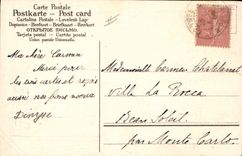 Carte Postale
Postkarte — Post card
Cartolina Postale — Levelező-Lap
Dopisnice — Briefkaart — Brefkort
ОТКРЫТОЕ ПИСЬМО.
Tarjeta postal — Cartão postal
Union postale Universelle.
Ma chère Carmen
Merci pour
les trois cartes et reçois
aussi nos bons vœux
Mademoiselle Carmen
Villa La Rocca
Beau Soleil
par Monte Carlo